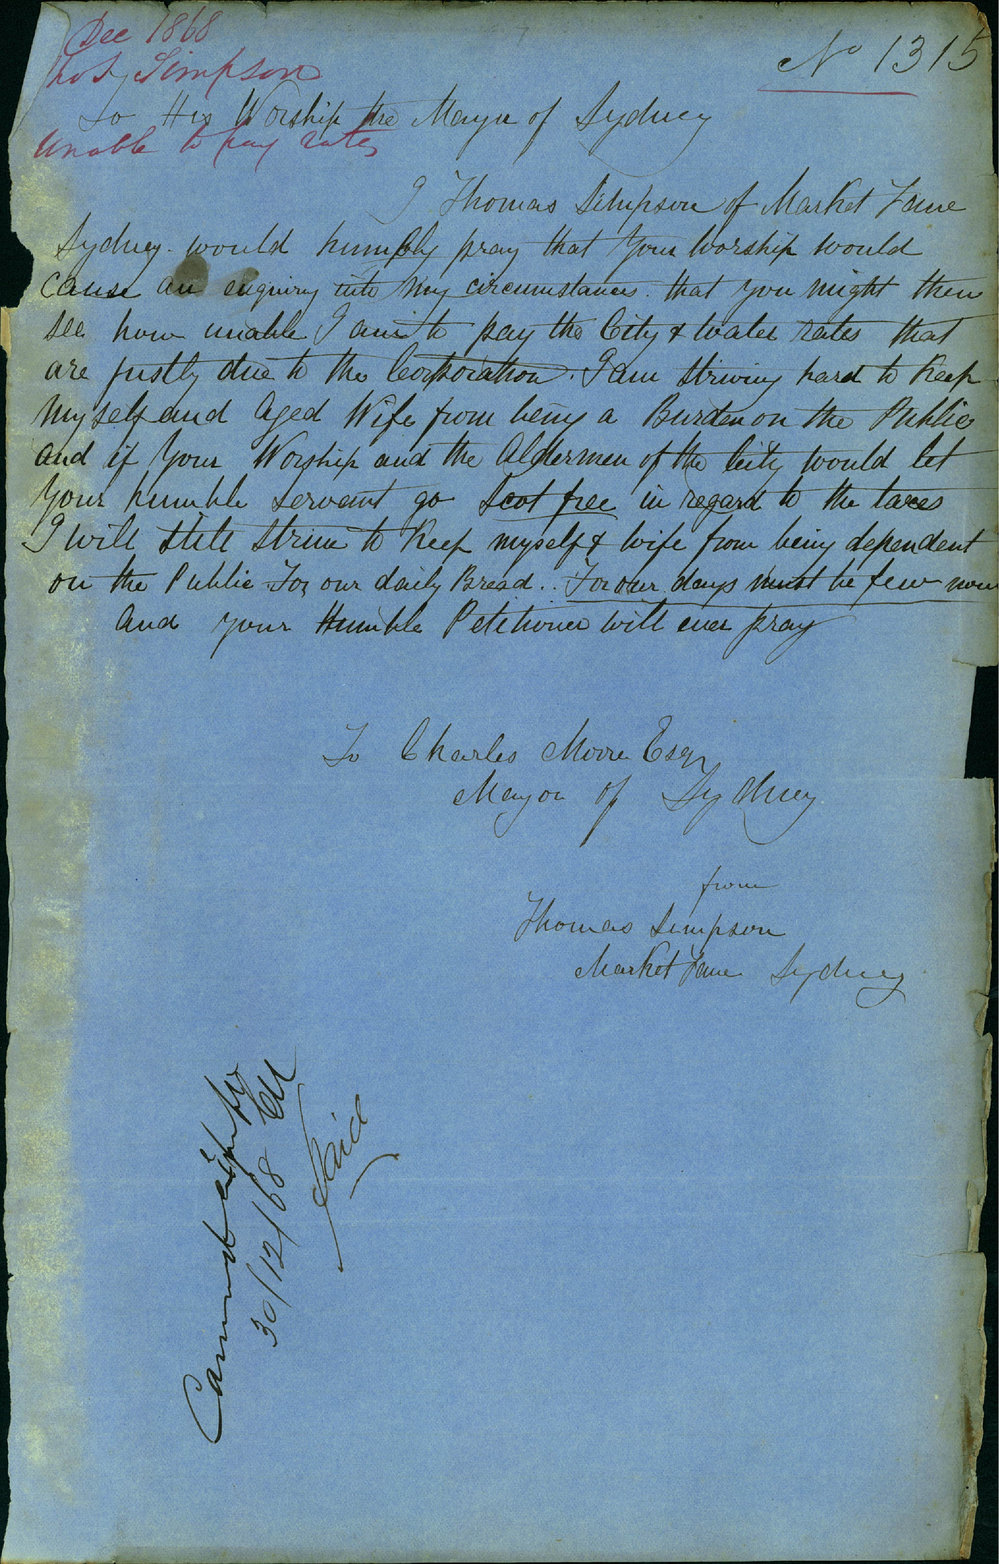 Dec 1868
Thos Simpson
No 1315
To His Worship the Mayor of Sydney
Unable to pay rates
I Thomas Simpson of Market Lane
Sydney. would humbly pray that Your Worship would
cause an enquiry into my circumstances. that you might then
see how unable I am to pay the City & Water rates that
are justly due to the Corporation. I am striving hard to Keep
myself and Aged Wife from being a Burden on the Public
and if Your Worship and the Aldermen of the City would let
Your humble Servant go Scot free in regard to the taxes
I will still strive to Keep myself & wife from being dependent
on the Public For our daily Bread.. For our days must be few now
And your Humble Petitioner will ever pray
To Charles Moore Esqr
Mayor of Sydney
from
Thomas Simpson
Market Lane Sydney
Cannot
30/12/68